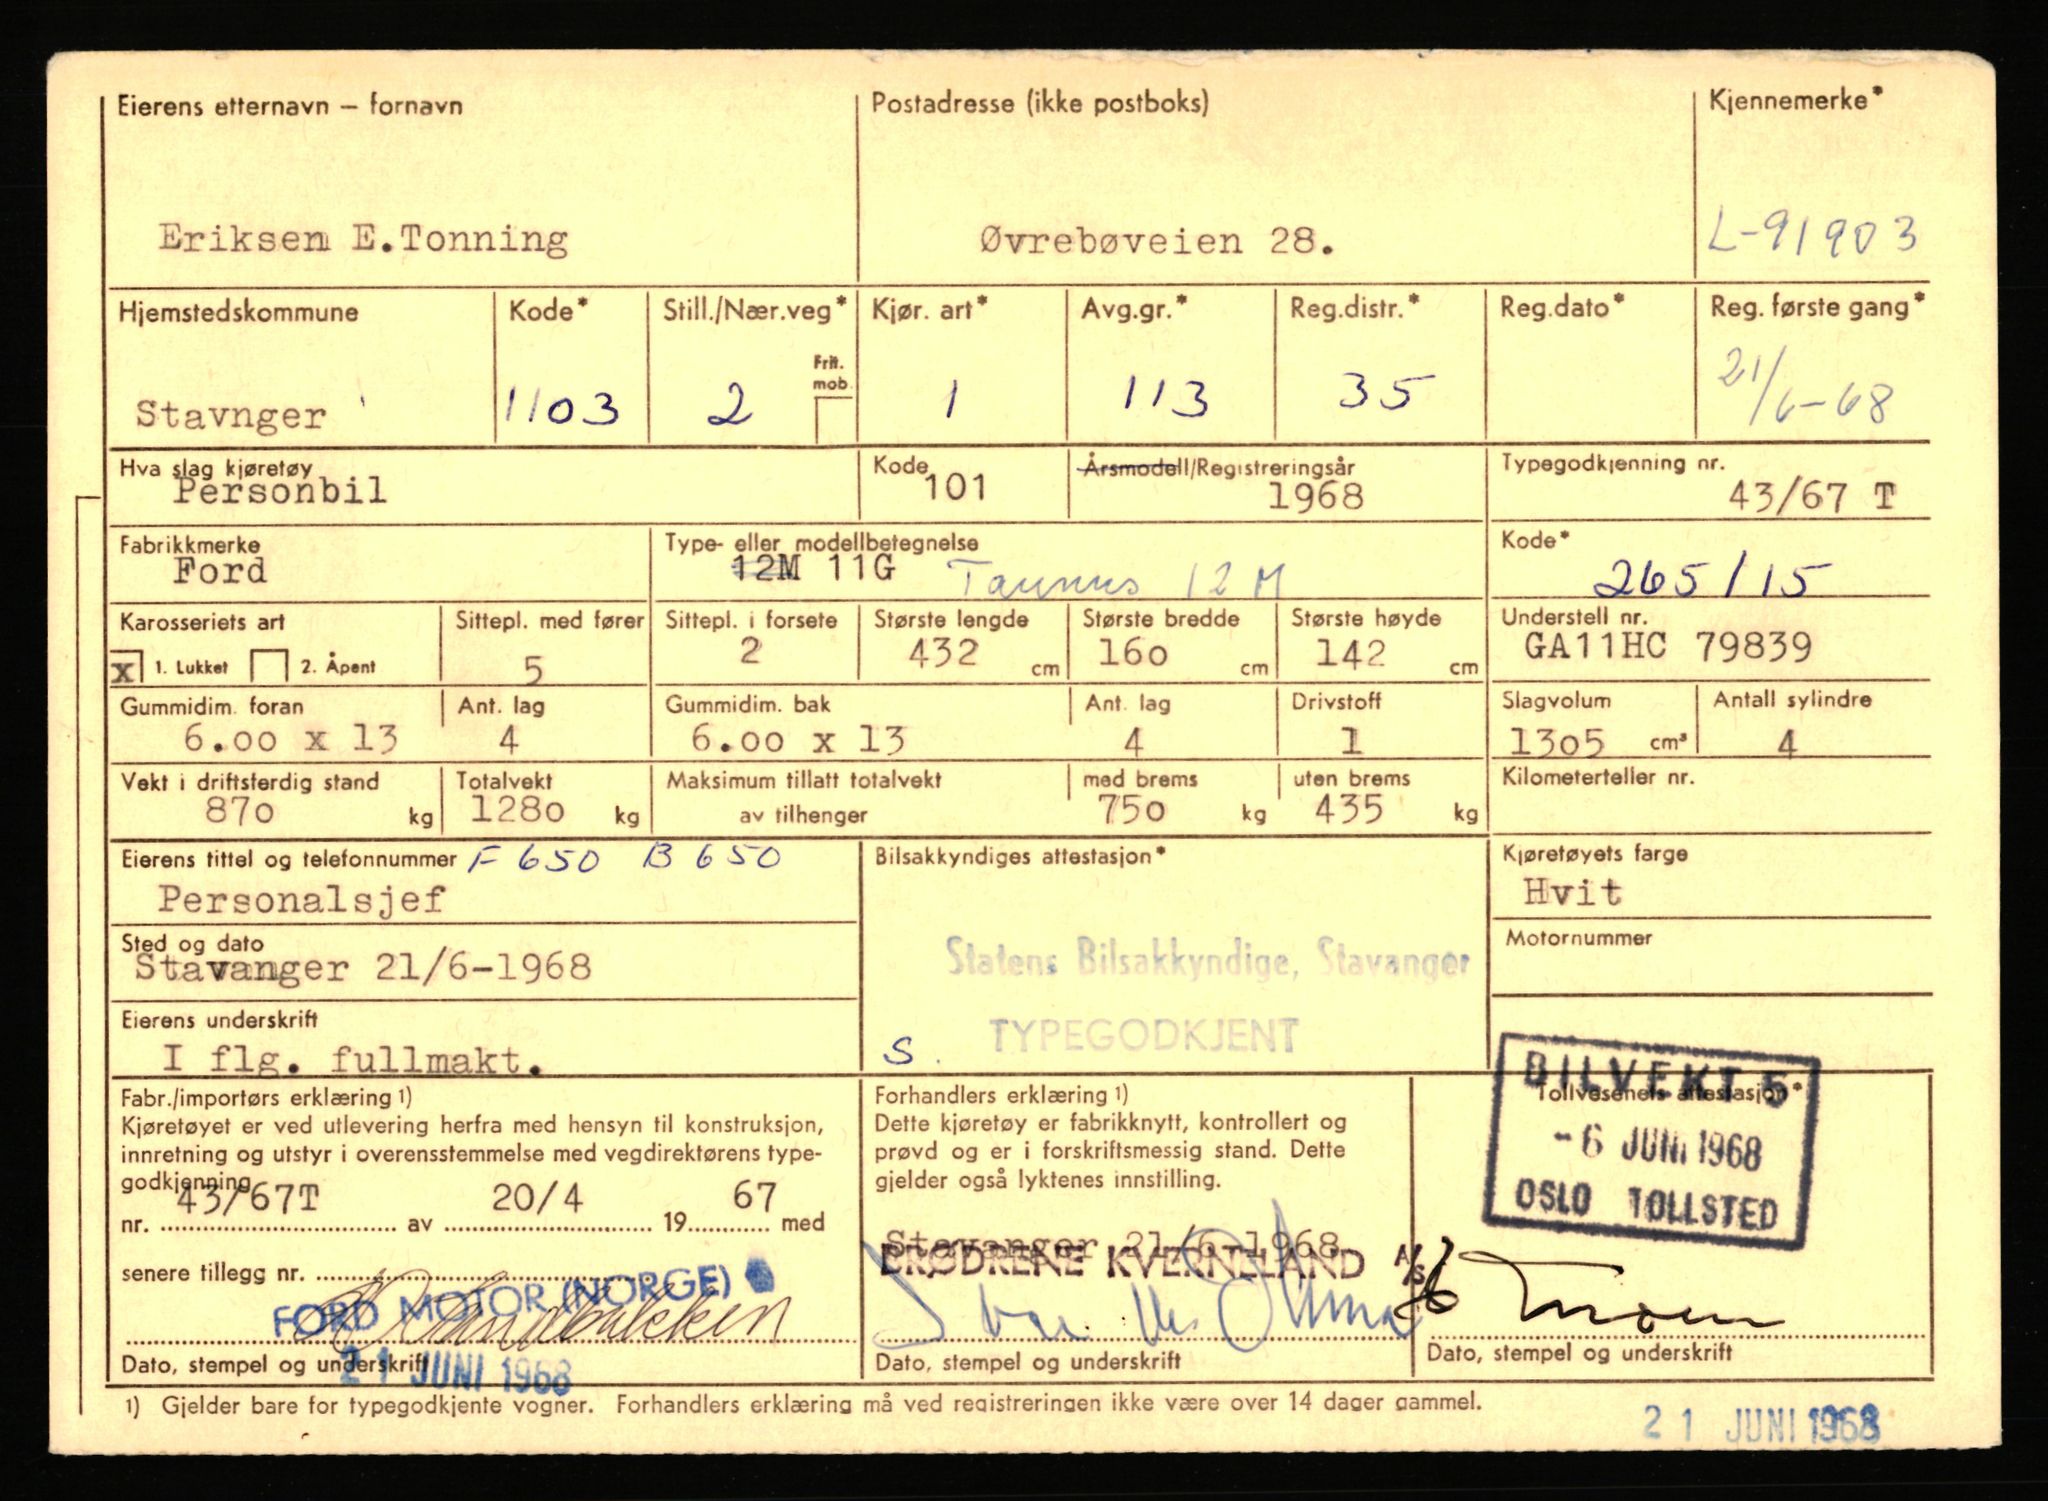 Eierens etternavn – fornavn
Postadresse (ikke postboks)
Kjennemerke*
Eriksen E.Tonning
Øvrebøveien 28.
L-91903
Hjemstedskommune
Kode*
Still./Nær.veg*
Kjør. art*
Avg.gr.*
Reg.distr.*
Reg.dato*
Reg. første gang*
Frit. mob.
Stavnger
1103
2
1
113
35
21/6-68
Hva slag kjøretøy
Kode
Årsmodell/Registreringsår
Typegodkjenning nr.
Personbil
101
1968
43/67 T
Fabrikkmerke
Type- eller modellbetegnelse
Kode*
Ford
12M 11G Taunus 12M
265/15
Karosseriets art
Sittepl. med fører
Sittepl. i forsete
Største lengde
Største bredde
Største høyde
Understell nr.
x 1. Lukket 2. Åpent
5
2
432 cm
160 cm
142 cm
GA11HC 79839
Gummidim. foran
Ant. lag
Gummidim. bak
Ant. lag
Drivstoff
Slagvolum
Antall sylindre
6.00 x 13
4
6.00 x 13
4
1
1305 cm³
4
Vekt i driftsferdig stand
Totalvekt
Maksimum tillatt totalvekt
med brems
uten brems
Kilometerteller nr.
870 kg
1280 kg
av tilhenger
750 kg
435 kg
Eierens tittel og telefonnummer F 650 B 650
Bilsakkyndiges attestasjon*
Kjøretøyets farge
Personalsjef
Hvit
Sted og dato
Motornummer
Stavanger 21/6-1968
Statens Bilsakkyndige, Stavanger
Eierens underskrift
I flg. fullmakt.
S.
TYPEGODKJENT
Fabr./importørs erklæring 1)
Kjøretøyet er ved utlevering herfra med hensyn til konstruksjon,
innretning og utstyr i overensstemmelse med vegdirektørens type-
godkjenning
nr. 43/67T av 20/4 19 67 med
senere tillegg nr.
FORD MOTOR (NORGE)
Dato, stempel og underskrift
21 JUNI 1968
Forhandlers erklæring 1)
Dette kjøretøy er fabrikknytt, kontrollert og
prøvd og er i forskriftsmessig stand. Dette
gjelder også lyktenes innstilling.
Stavanger 21/6-1968
BRØDRENE KVERNELAND A/S
Dato, stempel og underskrift
Tollvesenets attestasjon*
BILVEKT 5
-6 JUNI 1968
OSLO TOLLSTED
Dato, stempel og underskrift
1) Gjelder bare for typegodkjente vogner. Forhandlers erklæring må ved registreringen ikke være over 14 dager gammel.
21 JUNI 1968